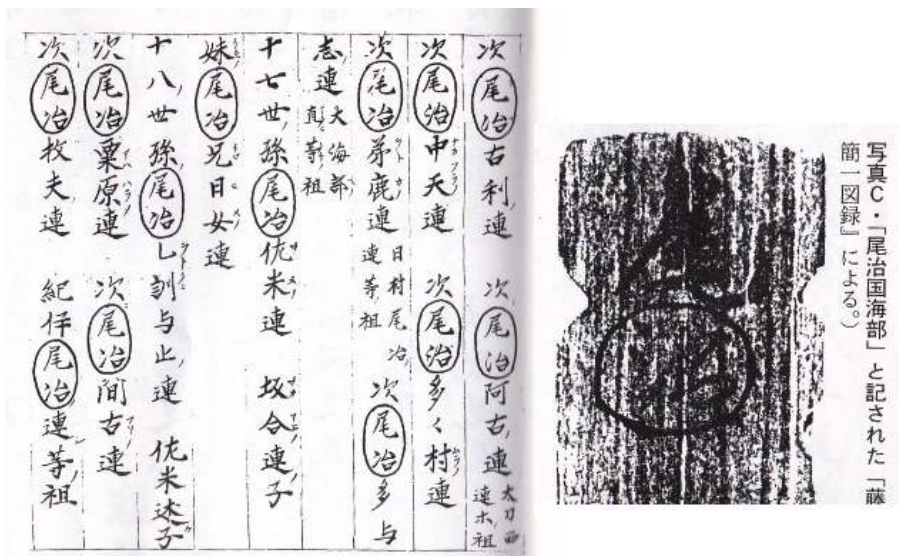 写真C・「尾治国海部」と記された「藤
簡一図録』による。)
次尾治古利連 次尾治阿古連
次尾治中天連 次尾治多々村連
次尾治弟鹿連 日村尾治連等祖 次尾治多与
志連 大海部直等祖
十七世孫尾治佐米連 坂合連子
妹尾治兄日女連
十八世孫尾治乙訓与止連 佐米連子
次尾治粟原連 次尾治間古連
次尾治枚夫連 紀伊尾治連等祖